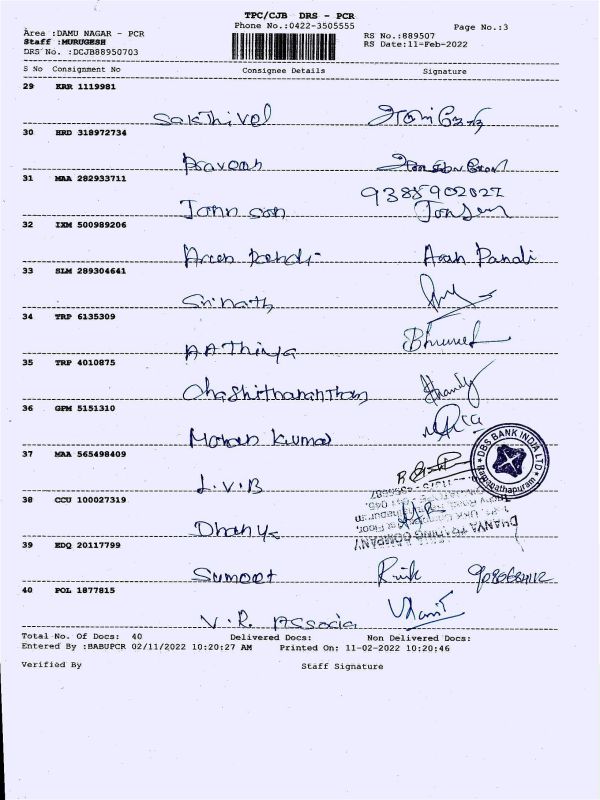 TPC/CJB DRS - PCR
Phone No.:0422-3505555
Page No.:3
Area :DAMU NAGAR - PCR
Staff :MURUGESH
RS No.:889507
DRS No. :DCJB88950703
RS Date:11-Feb-2022
S No Consignment No Consignee Details Signature
29 KRR 1119981
Sakthivel
30 HRD 318972734
Praveen
31 MAA 282933711
9385902027
Johnson
32 IXM 500989206
Arun Pandi Arun Pandi
33 SLM 289304641
Srinath
34 TRP 6135309
AAThinya
35 TRP 4010875
36 GPM 5151310
Mohan Kumar
DBS BANK INDIA LTD
Ramanathapuram
37 MAA 565498409
L.V.B
38 CCU 100027319
Dhanya
DHANYA TRADING COMPANY
39 EDQ 20117799
Sumeet
40 POL 1877815
V.R. Associa
Total No. Of Docs: 40 Delivered Docs: Non Delivered Docs:
Entered By :BABUPCR 02/11/2022 10:20:27 AM Printed On: 11-02-2022 10:20:46
Verified By Staff Signature